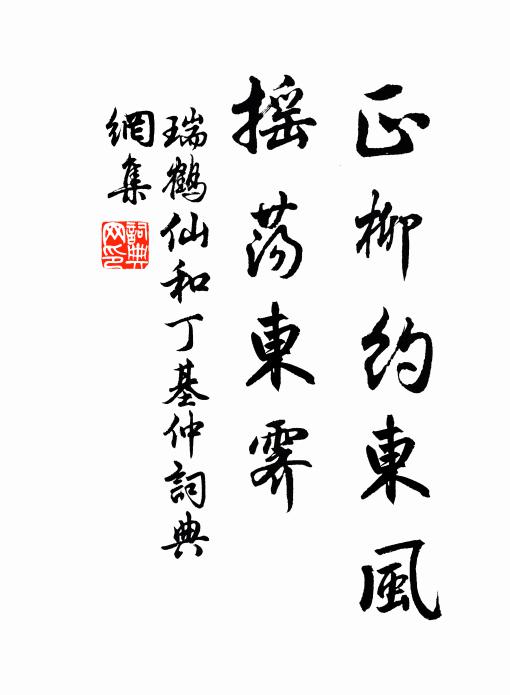 正柳約東風
摇蕩東霽
瑞鶴仙和丁基仲詞典
網集
詞典
网印